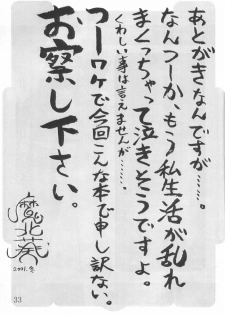 あとがきなんですが……。
なんつーか、もう私生活が乱れ
まくっちゃって泣きそうですよ。
くわしい事は言えませんが……、
つーワケで今回こんな本で申し訳ない。
お察し下さい。
魔北葵
2001.冬
33